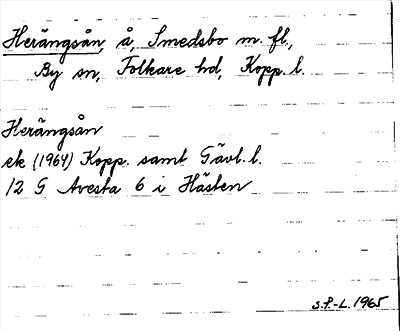 Herängsån, å, Smedsbo m. fl.,
By sn, Folkare hd, Kopp. l.
Herängsån
ek (1964) Kopp. samt Gävl. l.
12 G Avesta 6 i Hästen
S.P.-L. 1965